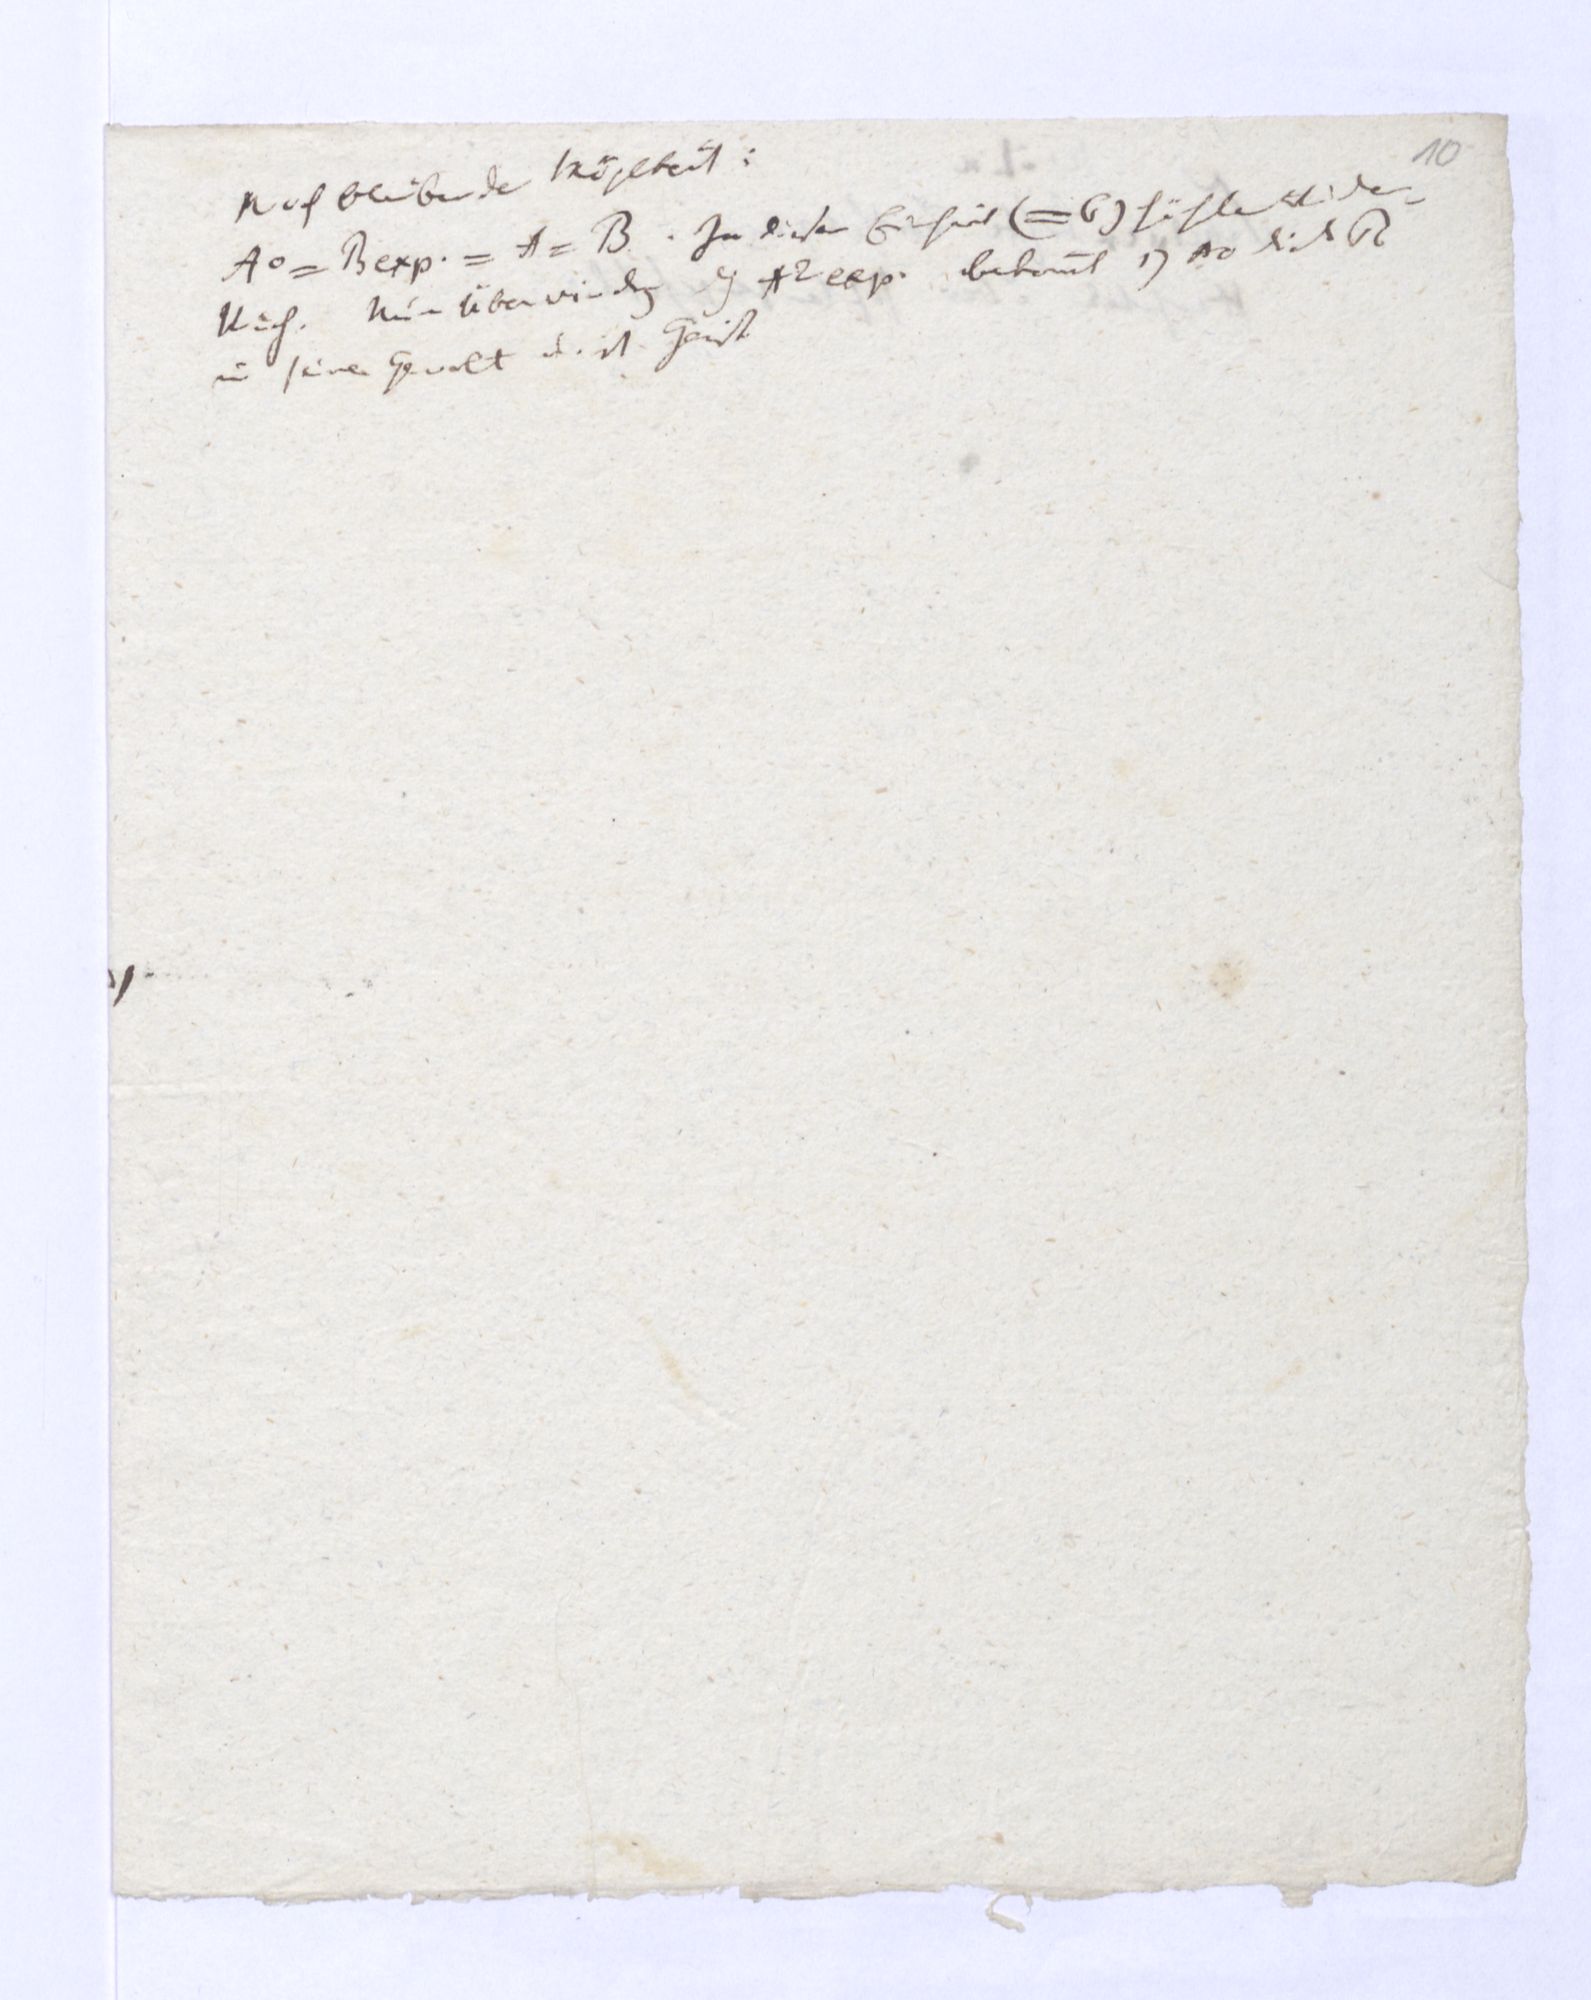 10
Noch bleibende Möglkeit:
A° = B exp. = A = B. In dieser Einheit (= B) fühle
nich. Nun Überwindg A² exp. bekomt 1) A0
in seine Gewalt u. ist Geist